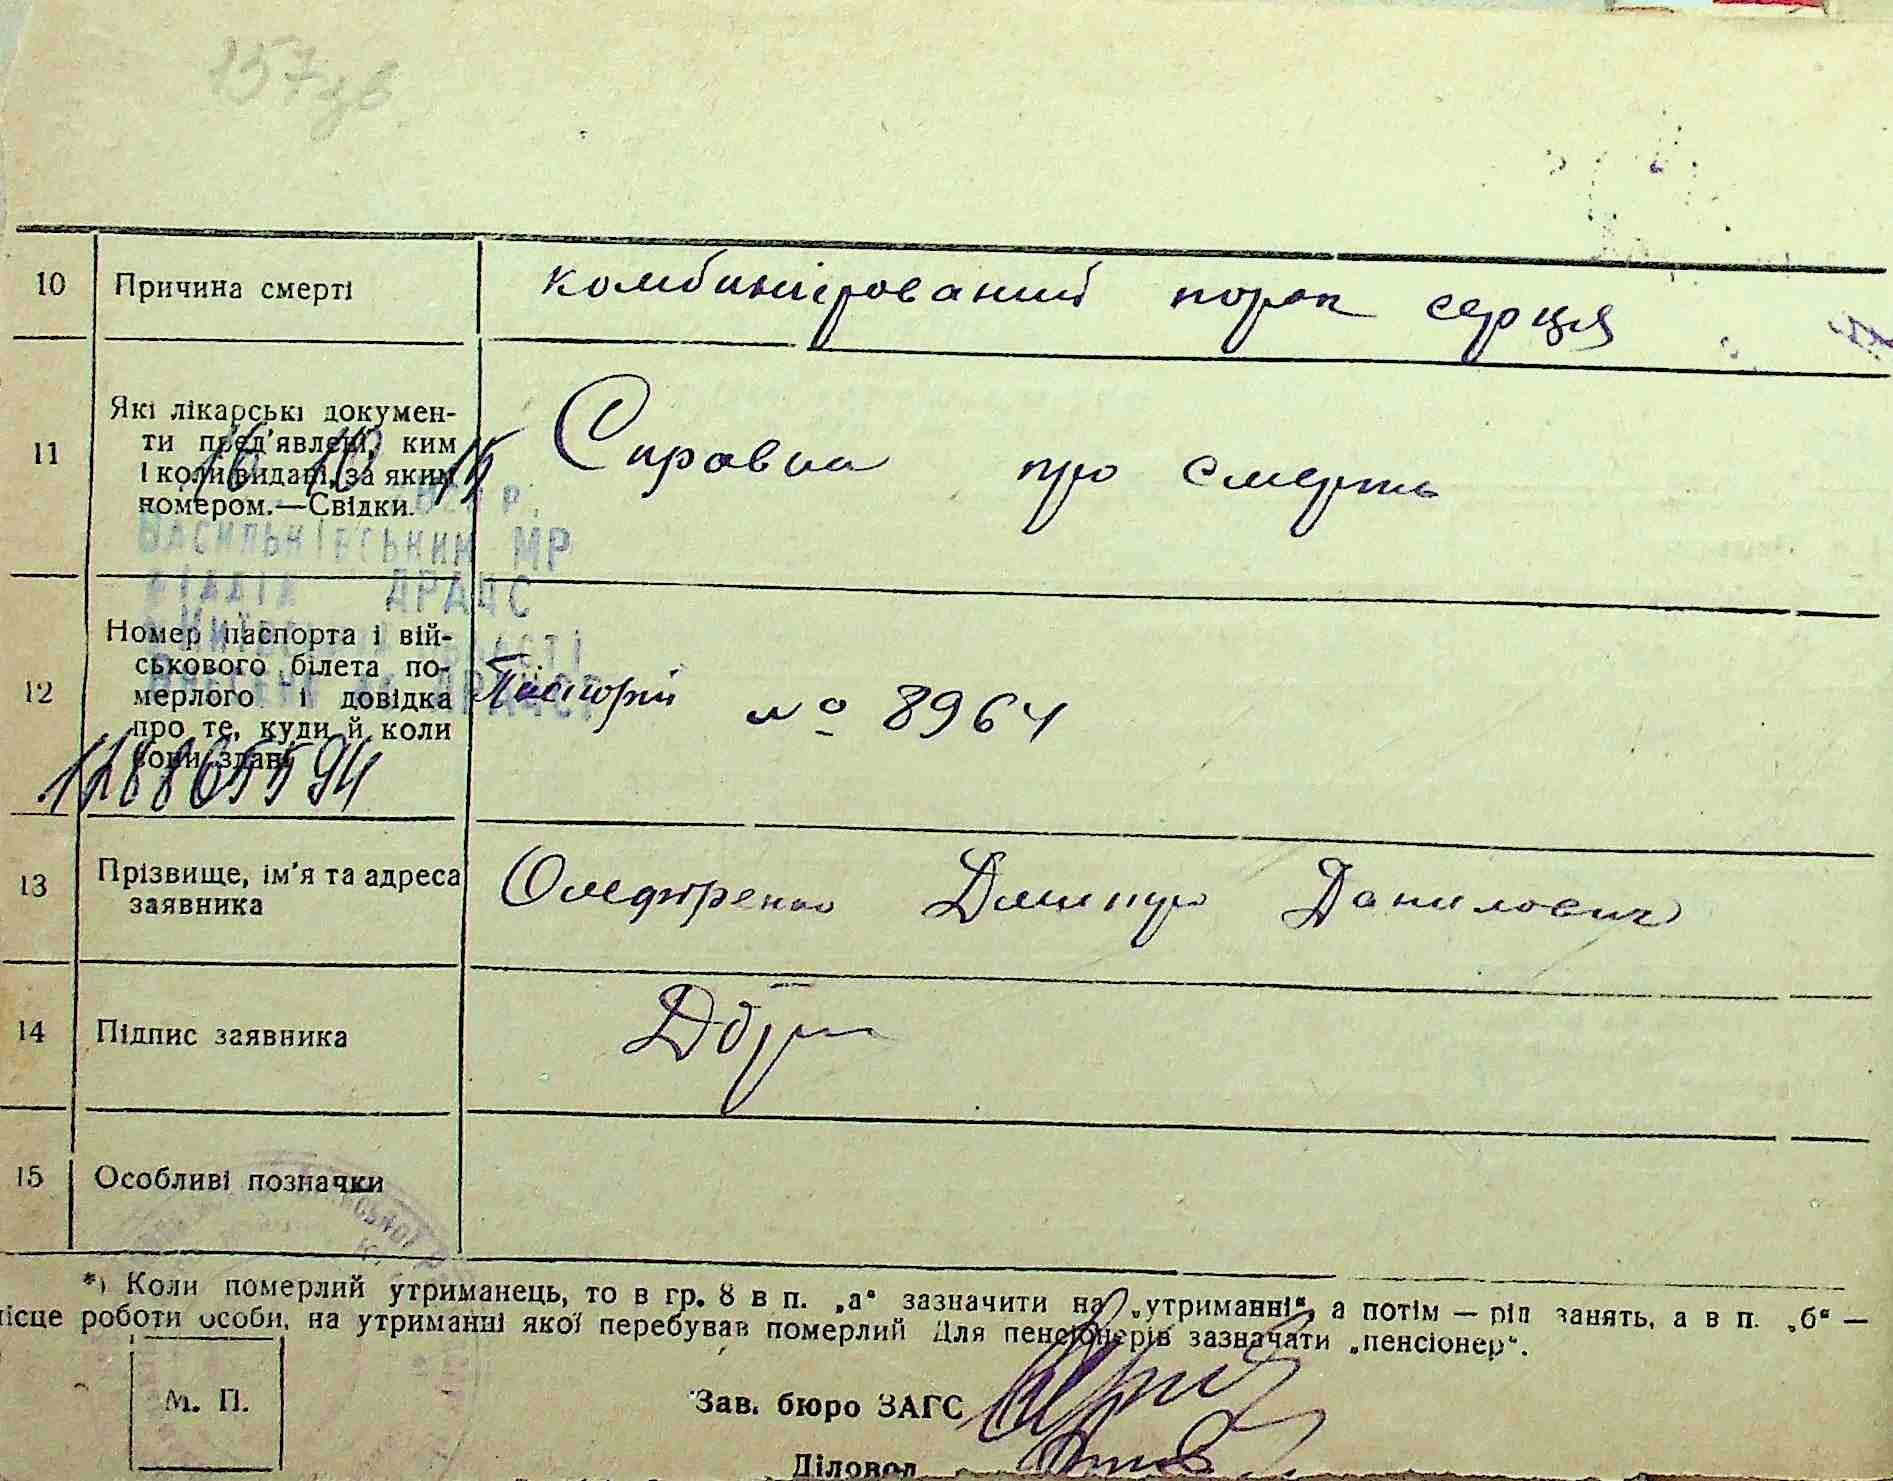 157зв
10 Причина смерті комбинирований порок серця
11 Які лікарські докумен-
ти пред'явлені, ким
і коли видані, за яким
номером.—Свідки.
Справка про смерть
16 10 15
р.
Васильківським МР
відділ ДРАЦС
12 Номер паспорта і вій-
ськового білета по-
мерлого і довідка
про те, куди й коли
вони здані
Паспорт № 8964
13 Прізвище, ім'я та адреса
заявника
Дмитро Данилович
14 Підпис заявника
15 Особливі позначки
*) Коли померлий утриманець, то в гр. 8 в п. „а“ зазначити на „утриманні“, а потім — рід занять, а в п. „б“ —
місце роботи особи, на утриманні якої перебував померлий Для пенсіонерів зазначати „пенсіонер“.
М. П.
Зав. бюро ЗАГС
Діловод